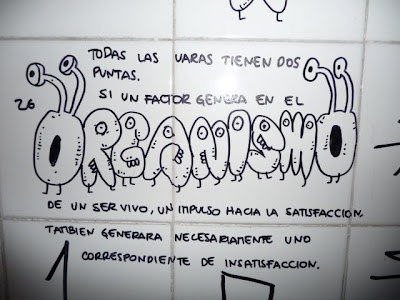 TODAS LAS VARAS TIENEN DOS
PUNTAS.
26
SI UN FACTOR GENERA EN EL
ORGANISMO
DE UN SER VIVO, UN IMPULSO HACIA LA SATISFACCION.
TATIBIEN GENERARA NECESARIAMENTE UNO
CORRESPONDIENTE DE INSATISFACCION.